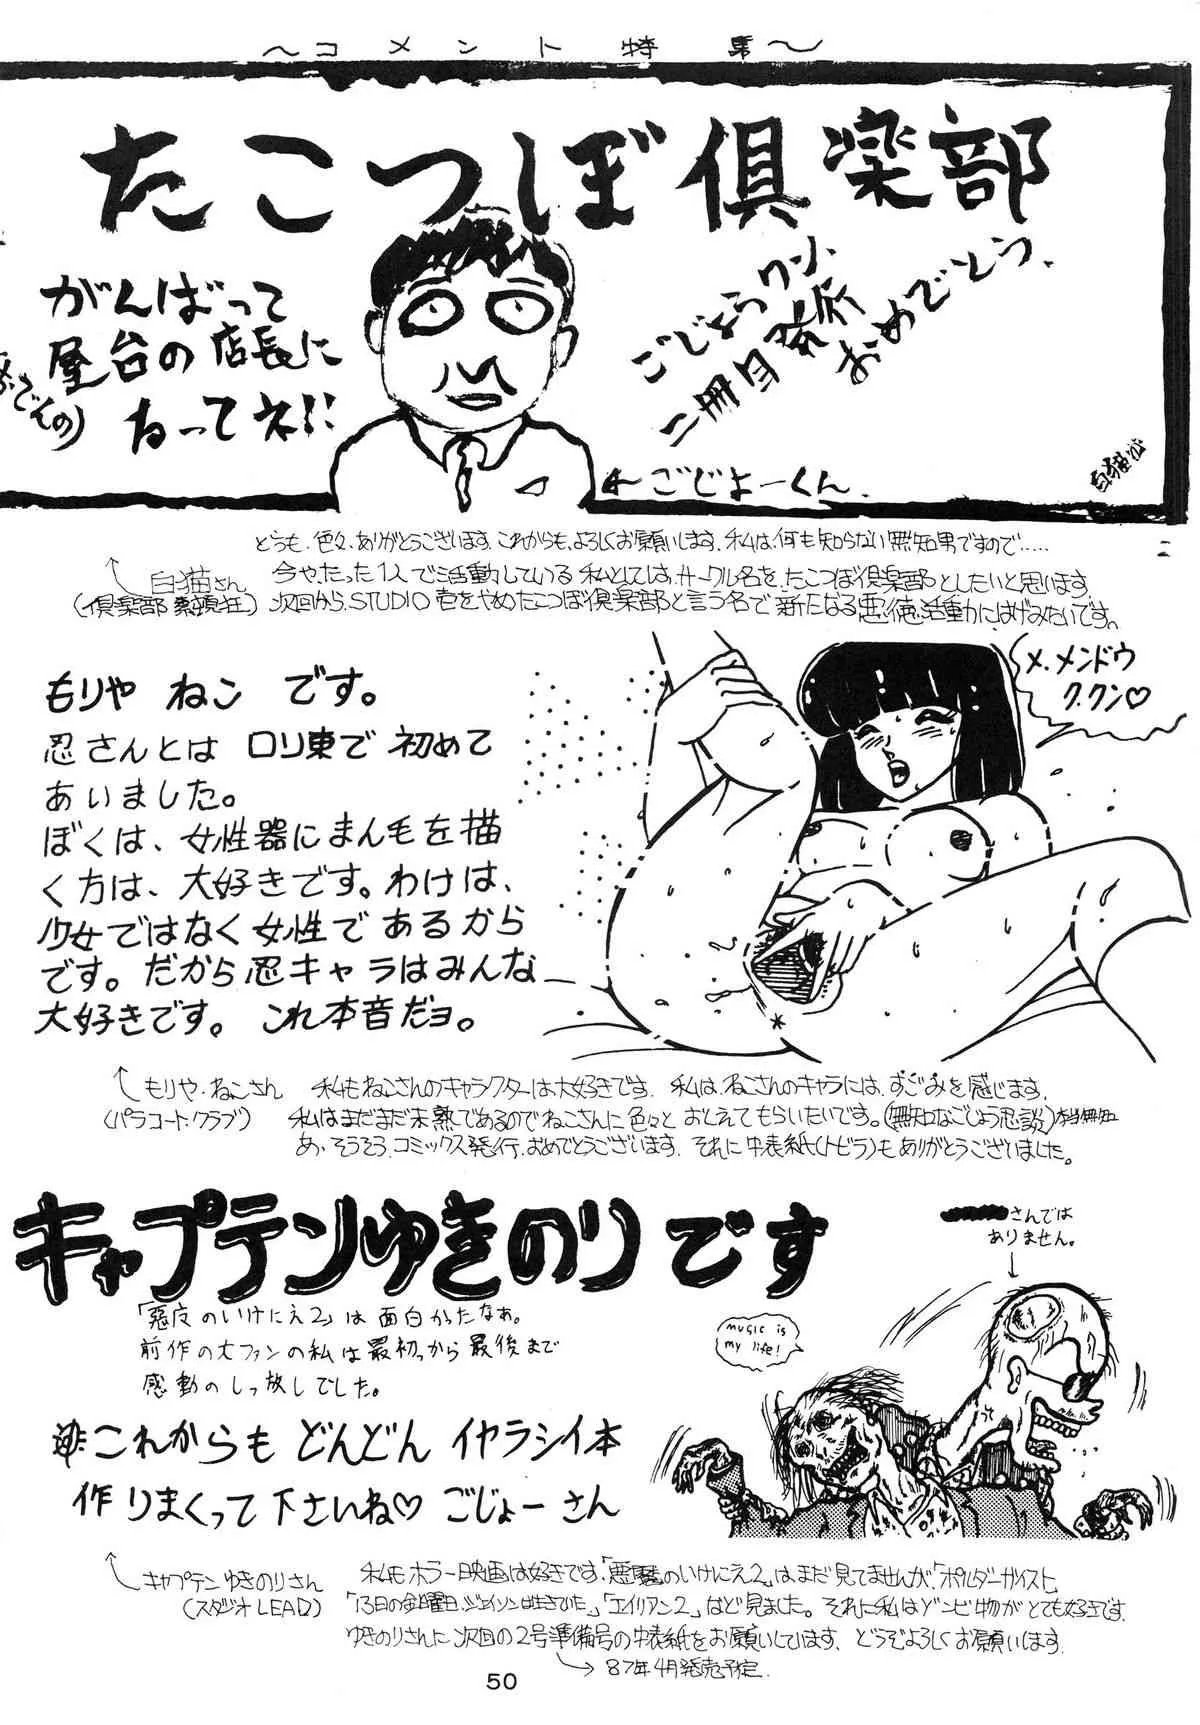 ～コメント特集～
たこつぼ倶楽部
がんばって
屋台の店長に
なってネ!!
(おでんの)
ごじょうクン、
二冊目発行
おめでとう、
白猫
←ごじょーくん、
どうも、色々、ありがとうございます、これからも、よろしくお願いします、私は、何も知らない無知男ですので……
↑白猫さん
今や、たった1人で活動している私としては、サークル名を、たこつぼ倶楽部としたいと思います
次回から、STUDIO壱をやめたこつぼ倶楽部と言う名で新たなる悪徳活動にはげみたいです。
もりや ねこ です。
忍さんとは ロリ東で初めて
あいました。
ぼくは、女性器にまん毛を描
く方は、大好きです。わけは、
少女ではなく女性であるから
です。だから忍キャラはみんな
大好きです。これ本音だヨ。
メ.メンドウ
ク.クン♡
↑もりや・ねこさん
(パラコート・クラブ)
私もねこさんのキャラクターは大好きです、私は、ねこさんのキャラには、すごみを感じます、
私はまだまだ未熟であるのでねこさんに色々とおしえてもらいたいです。(無知なごじょう忍談)
あ、そうそう、コミックス発行、おめでとうございます、それに中表紙(トビラ)もありがとうございました。
キャプテンゆきのりです
さんでは
ありません。
「悪魔のいけにえ2」は面白かったなぁ。
前作の大ファンの私は最初っから最後まで
感動のしっ放しでした。
music is
my life!
これからも どんどん イヤラシイ本
作りまくって下さいね♡ ごじょーさん
↑キャプテンゆきのりさん
(スタジオLEAD)
私もホラー映画は好きです、「悪魔のいけにえ2」はまだ見てませんが、「ポルターガイスト」、
「13日の金曜日、ジェイソンは生きていた」、「エイリアン2」など見ました。それに私はゾンビ物がとても好きです、
ゆきのりさんに次回の2号準備号の中表紙をお願いしています、どうぞよろしくお願いします、
→87年4月発売予定、
50